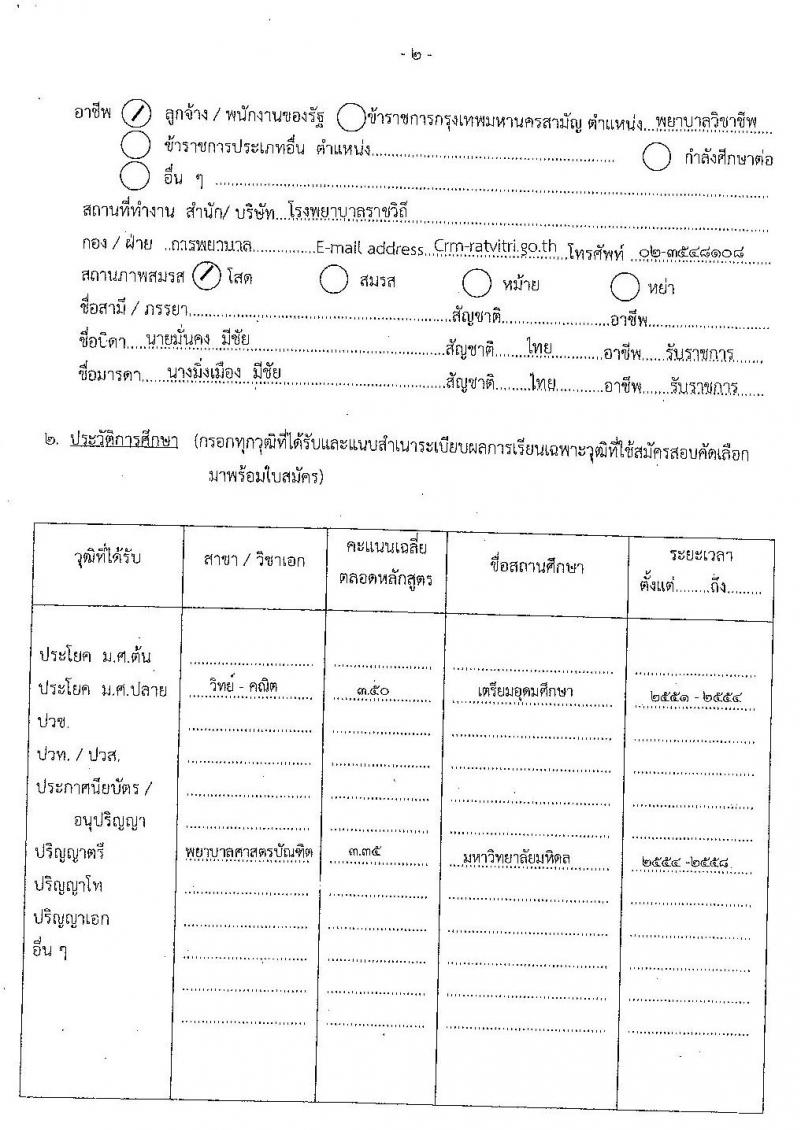 - ๒ -
อาชีพ ลูกจ้าง / พนักงานของรัฐ ข้าราชการกรุงเทพมหานครสามัญ ตำแหน่ง...พยาบาลวิชาชีพ
ข้าราชการประเภทอื่น ตำแหน่ง........................ กำลังศึกษาต่อ
อื่น ๆ ........................
สถานที่ทำงาน สำนัก/ บริษัท...โรงพยาบาลราชวิถี
กอง / ฝ่าย ..การพยาบาล.............E-mail address...Crm-ratvitri.go.th...โทรศัพท์ ..๐๒-๓๕๔๘๑๐๘
สถานภาพสมรส โสด สมรส หม้าย หย่า
ชื่อสามี / ภรรยา........................สัญชาติ........................อาชีพ........................
ชื่อบิดา...นายมั่นคง มีชัย........................สัญชาติ.......ไทย..........อาชีพ.....รับราชการ......
ชื่อมารดา....นางมิ่งเมือง มีชัย........................สัญชาติ.......ไทย..........อาชีพ......รับราชการ.....
๒. ประวัติการศึกษา (กรอกทุกวุฒิที่ได้รับและแนบสำเนาระเบียบผลการเรียนเฉพาะวุฒิที่ใช้สมัครสอบคัดเลือก
มาพร้อมใบสมัคร)
วุฒิที่ได้รับ สาขา / วิชาเอก คะแนนเฉลี่ย ชื่อสถานศึกษา ระยะเวลา
ตลอดหลักสูตร ตั้งแต่.........ถึง.........
ประโยค ม.ศ.ต้น
ประโยค ม.ศ.ปลาย วิทย์ - คณิต ๓.๕๐ เตรียมอุดมศึกษา ๒๕๕๑ - ๒๕๕๔
ปวช.
ปวท. / ปวส.
ประกาศนียบัตร /
อนุปริญญา
ปริญญาตรี พยาบาลศาสตรบัณฑิต ๓.๓๕ มหาวิทยาลัยมหิดล ๒๕๕๔ -๒๕๕๘
ปริญญาโท
ปริญญาเอก
อื่น ๆ